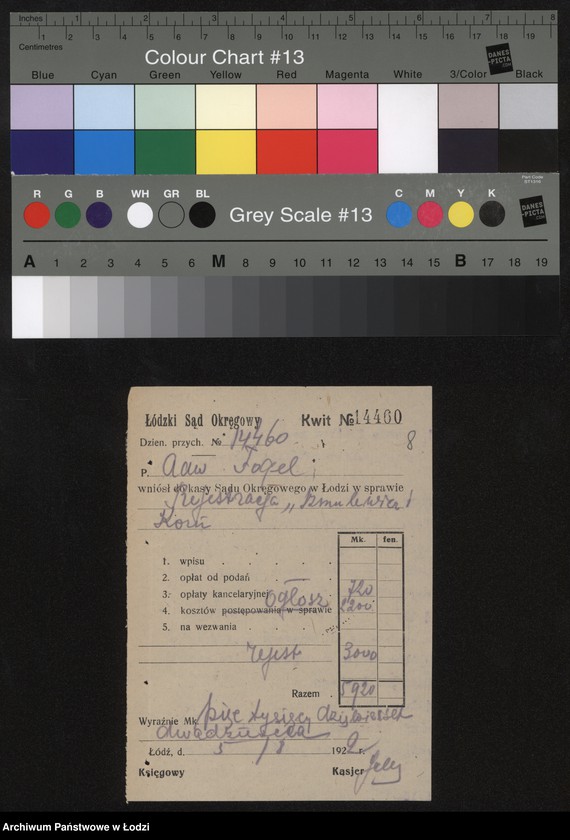 Inches 1 2 3 4 5 6 7 8
Centimetres 1 2 3 4 5 6 7 8 9 10 11 12 13 14 15 16 17 18 19
Colour Chart #13
DANES-PICTA.COM
Blue Cyan Green Yellow Red Magenta White 3/Color Black
Part Code ST1316
R G B WH GR BL Grey Scale #13 C M Y K
DANES-PICTA.COM
A 1 2 3 4 5 6 M 8 9 10 11 12 13 14 15 B 17 18 19
Łódzki Sąd Okręgowy Kwit № 14460
Dzien. przych. № 14460 8
P. Adw Fogel
wniósł do kasy Sądu Okręgowego w Łodzi w sprawie
Rejestracja „Szmulewicz i
Korn
Mk. fen.
1. wpisu
2. opłat od podań
3. opłaty kancelaryjnej 720
4. kosztów postępowania w sprawie ogłosz 2200
5. na wezwania
rejest 3000
Razem 5920
Wyraźnie Mk. pięć tysięcy dziewięćset
dwadzieścia
Łódź, d. 5/8 1922 r.
Księgowy Kasjer
Archiwum Państwowe w Łodzi